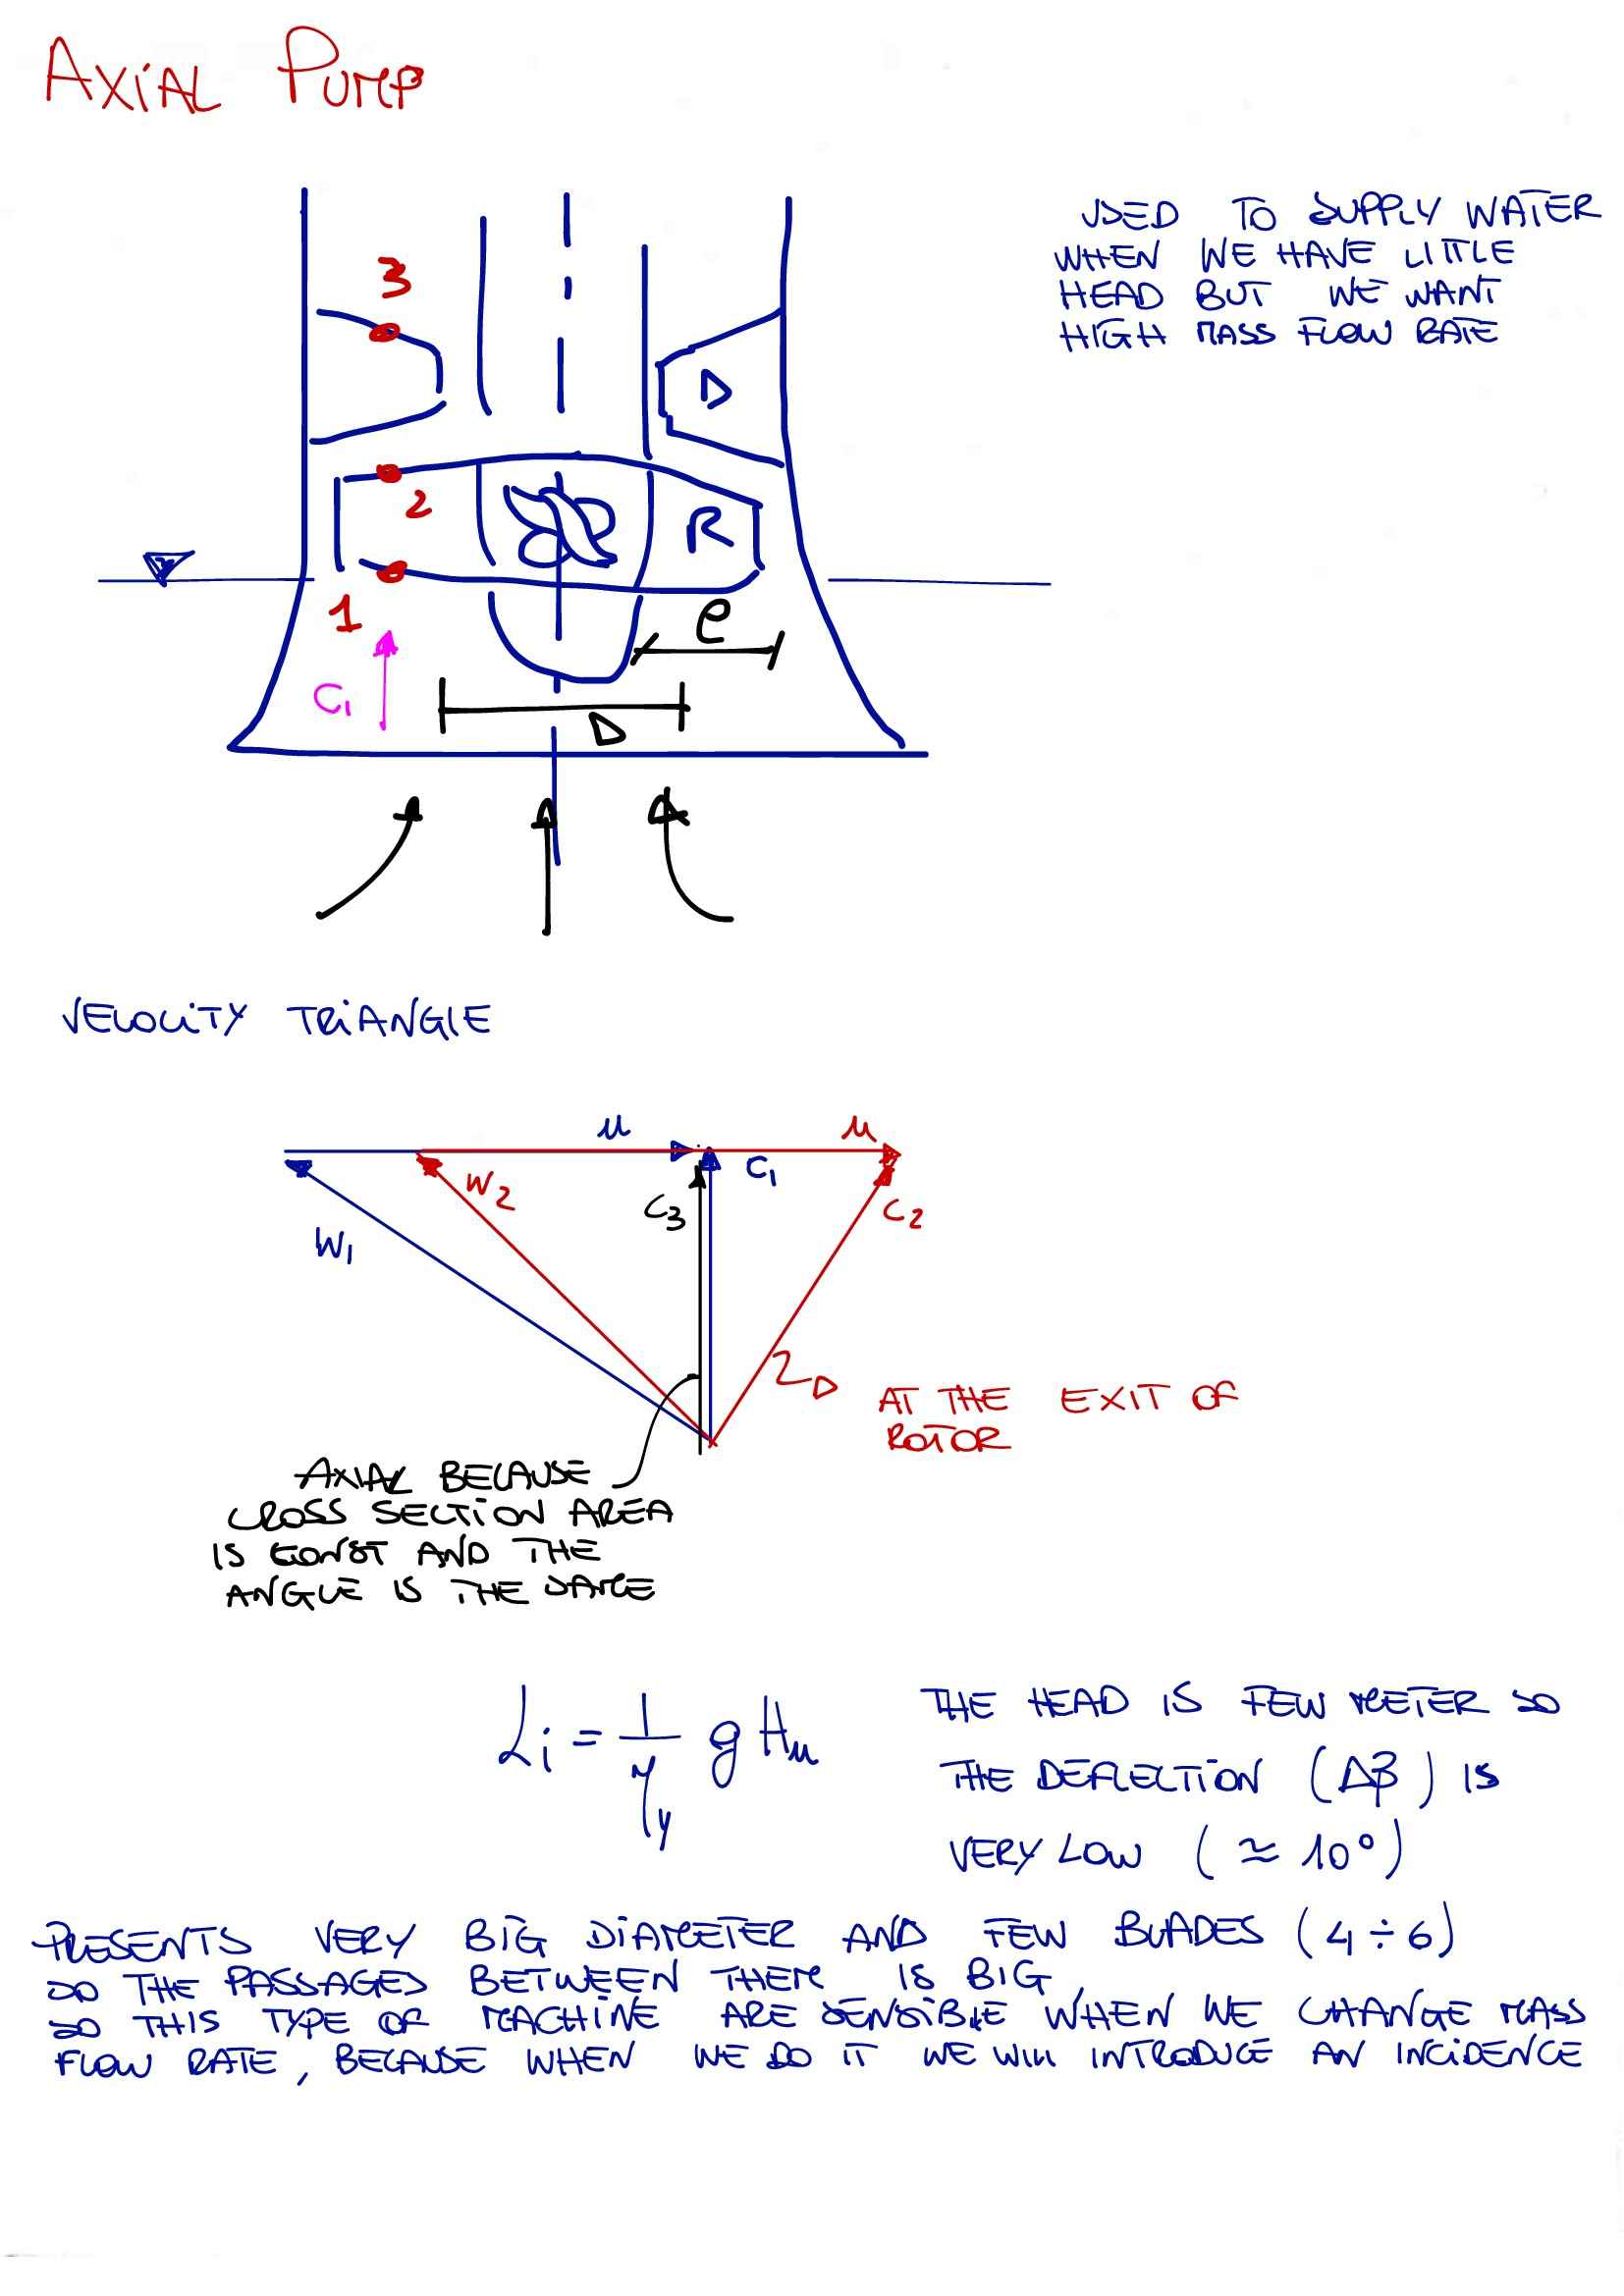 AXiAL PUMP
USED TO SUPPLY WATER
WHEN WE HAVE LITTLE
HEAD BUT WE WANT
HIGH MASS FLOW RATE
3
D
2
R
1
e
C1
D
VELOCITY TRIANGLE
u
u
C1
W2
C3
C2
W1
2D
AT THE EXIT OF
ROTOR
AXIAL BECAUSE
CROSS SECTION AREA
IS CONST AND THE
ANGLE IS THE SAME
Li = 1/ηy g Hu
THE HEAD IS FEW METER SO
THE DEFLECTION (Δβ) IS
VERY LOW (≈ 10°)
PRESENTS VERY BIG DIAMETER AND FEW BLADES (4 ÷ 6)
SO THE PASSAGES BETWEEN THEM IS BIG
SO THIS TYPE OF MACHINE ARE SENSIBLE WHEN WE CHANGE MASS
FLOW RATE, BECAUSE WHEN WE DO IT WE WILL INTRODUCE AN INCIDENCE